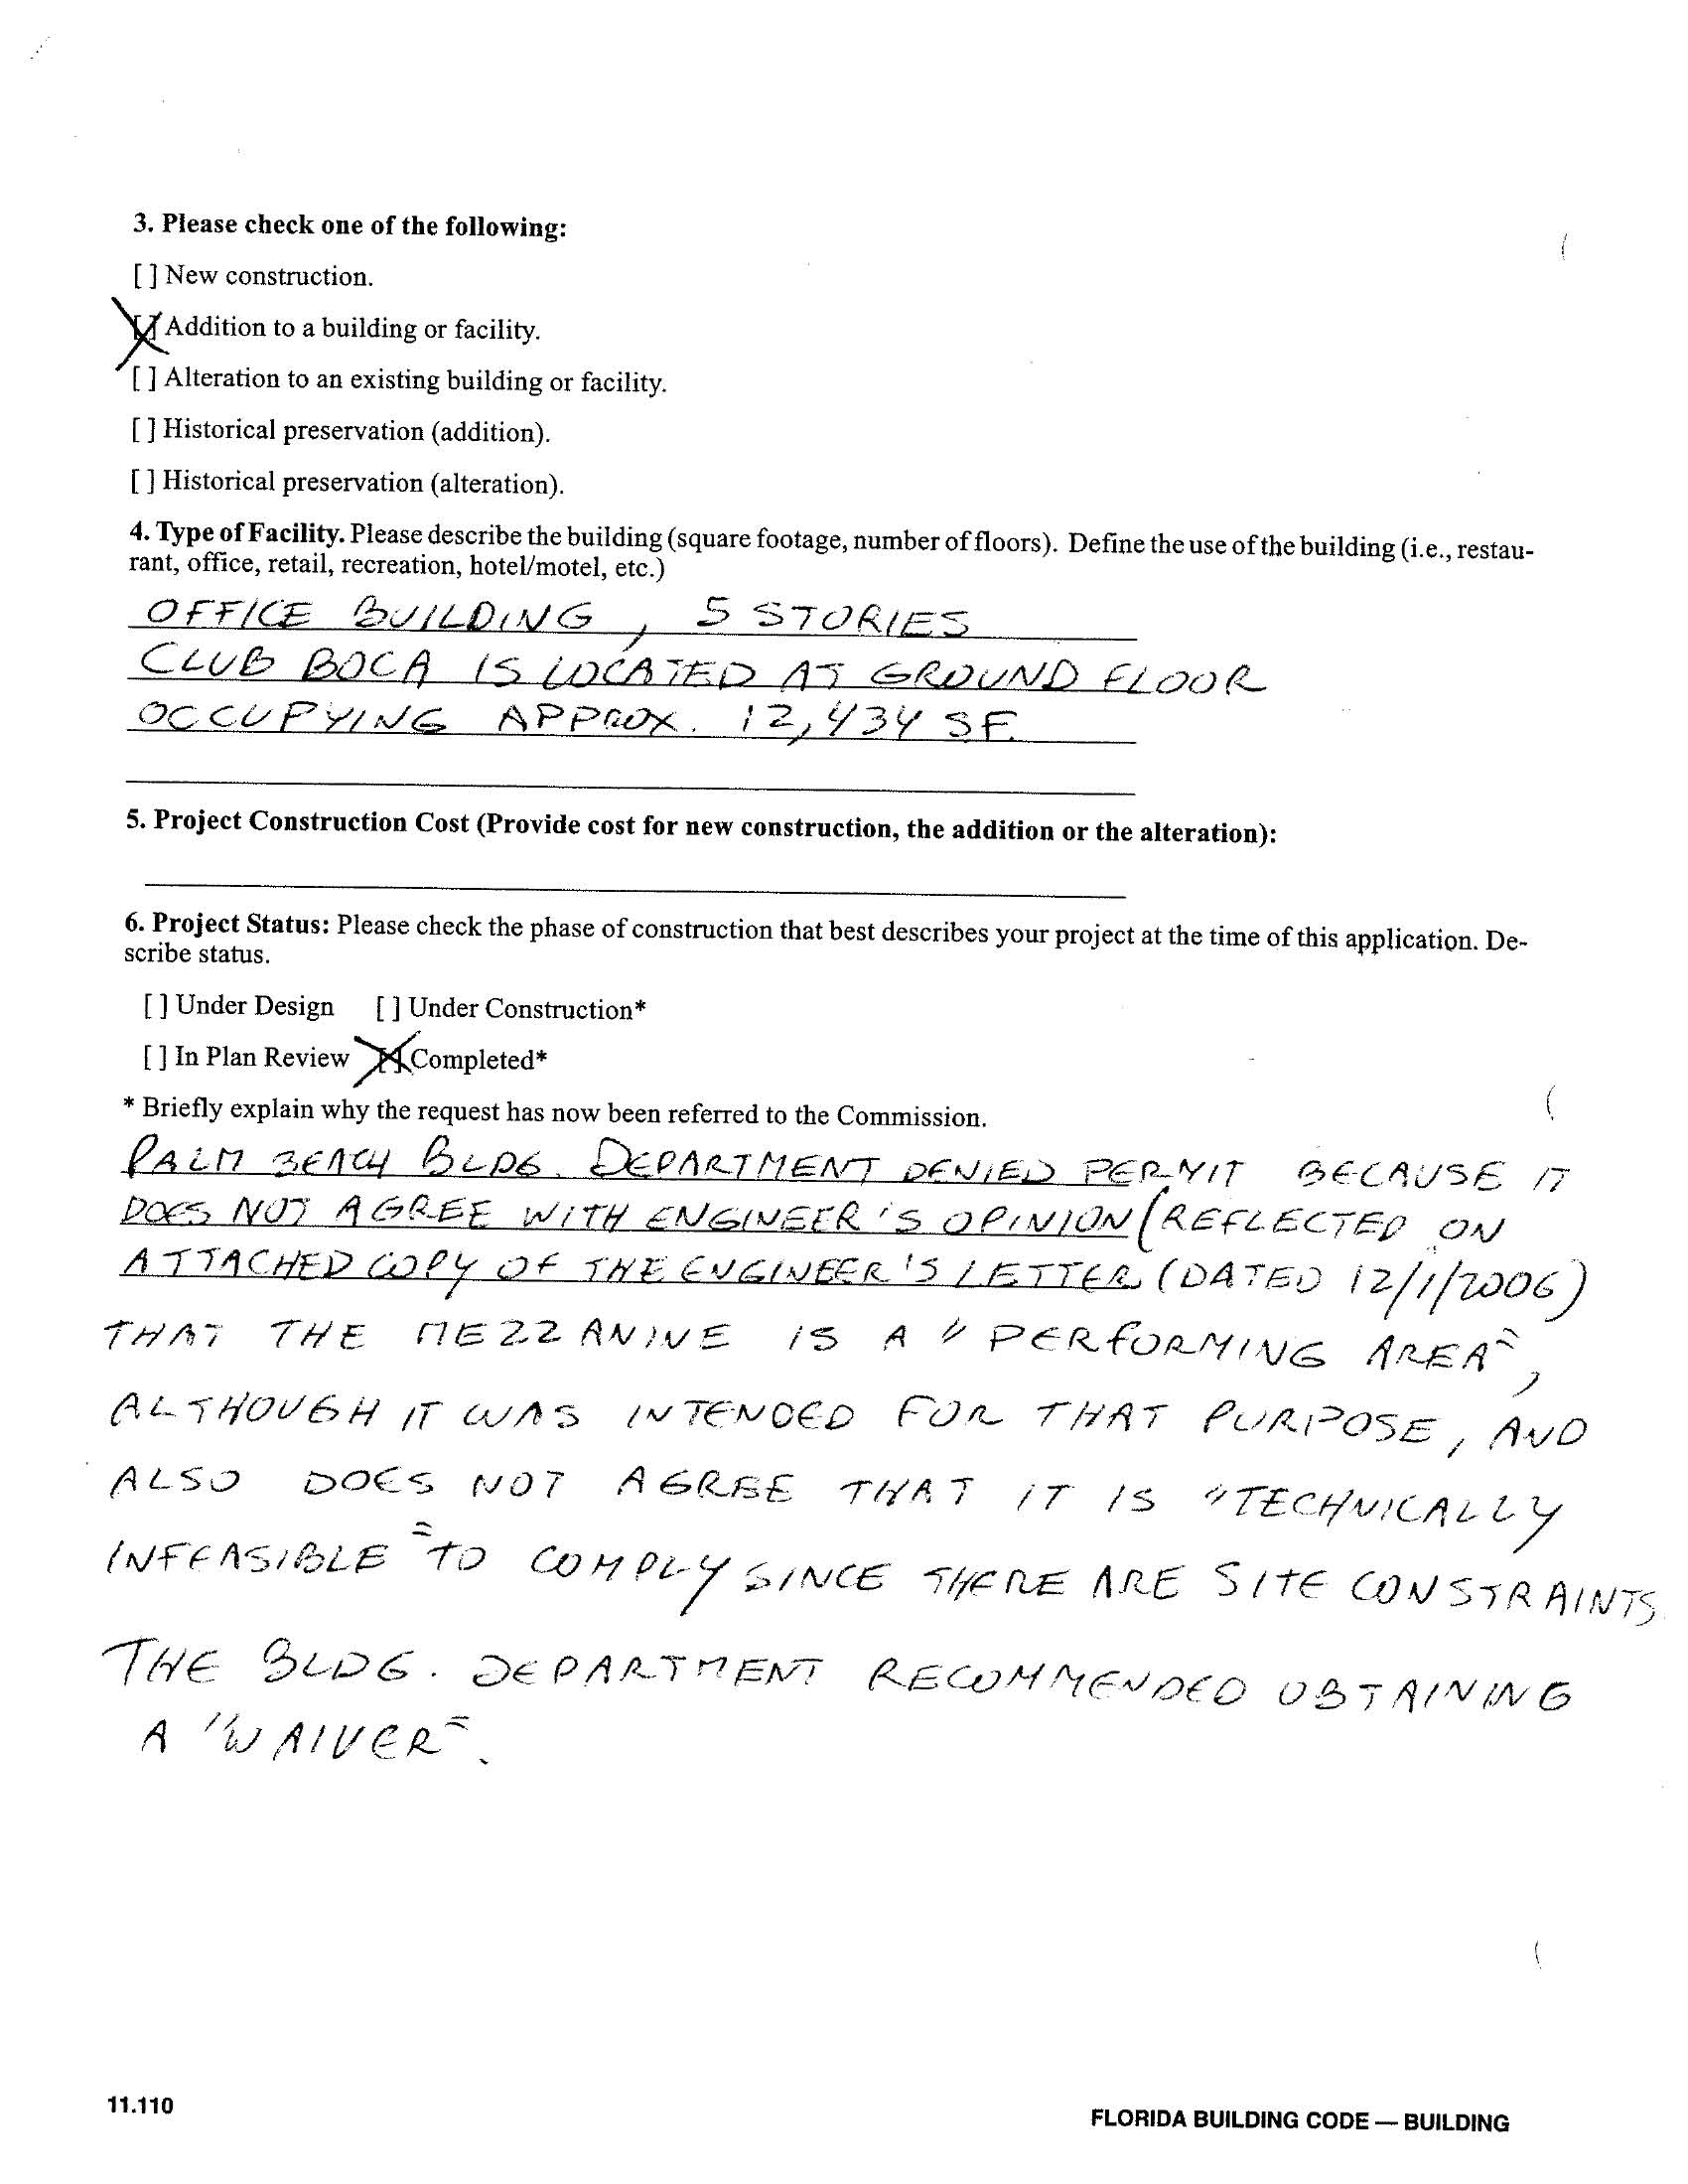 3. Please check one of the following:
[ ] New construction.
[X] Addition to a building or facility.
[ ] Alteration to an existing building or facility.
[ ] Historical preservation (addition).
[ ] Historical preservation (alteration).
4. Type of Facility. Please describe the building (square footage, number of floors). Define the use of the building (i.e., restau-
rant, office, retail, recreation, hotel/motel, etc.)
OFFICE BUILDING, 5 STORIES
CLUB BOCA IS LOCATED AT GROUND FLOOR
OCCUPYING APPROX. 12,434 SF.
5. Project Construction Cost (Provide cost for new construction, the addition or the alteration):
6. Project Status: Please check the phase of construction that best describes your project at the time of this application. De-
scribe status.
[ ] Under Design [ ] Under Construction*
[ ] In Plan Review [X] Completed*
* Briefly explain why the request has now been referred to the Commission.
PALM BEACH BLDG. DEPARTMENT DENIED PERMIT BECAUSE IT
DOES NOT AGREE WITH ENGINEER'S OPINION (REFLECTED ON
ATTACHED COPY OF THE ENGINEER'S LETTER (DATED 12/1/2006)
THAT THE MEZZANINE IS A "PERFORMING AREA",
ALTHOUGH IT WAS INTENDED FOR THAT PURPOSE, AND
ALSO DOES NOT AGREE THAT IT IS "TECHNICALLY
INFEASIBLE" TO COMPLY SINCE THERE ARE SITE CONSTRAINTS
THE BLDG. DEPARTMENT RECOMMENDED OBTAINING
A "WAIVER".
11.110
FLORIDA BUILDING CODE — BUILDING